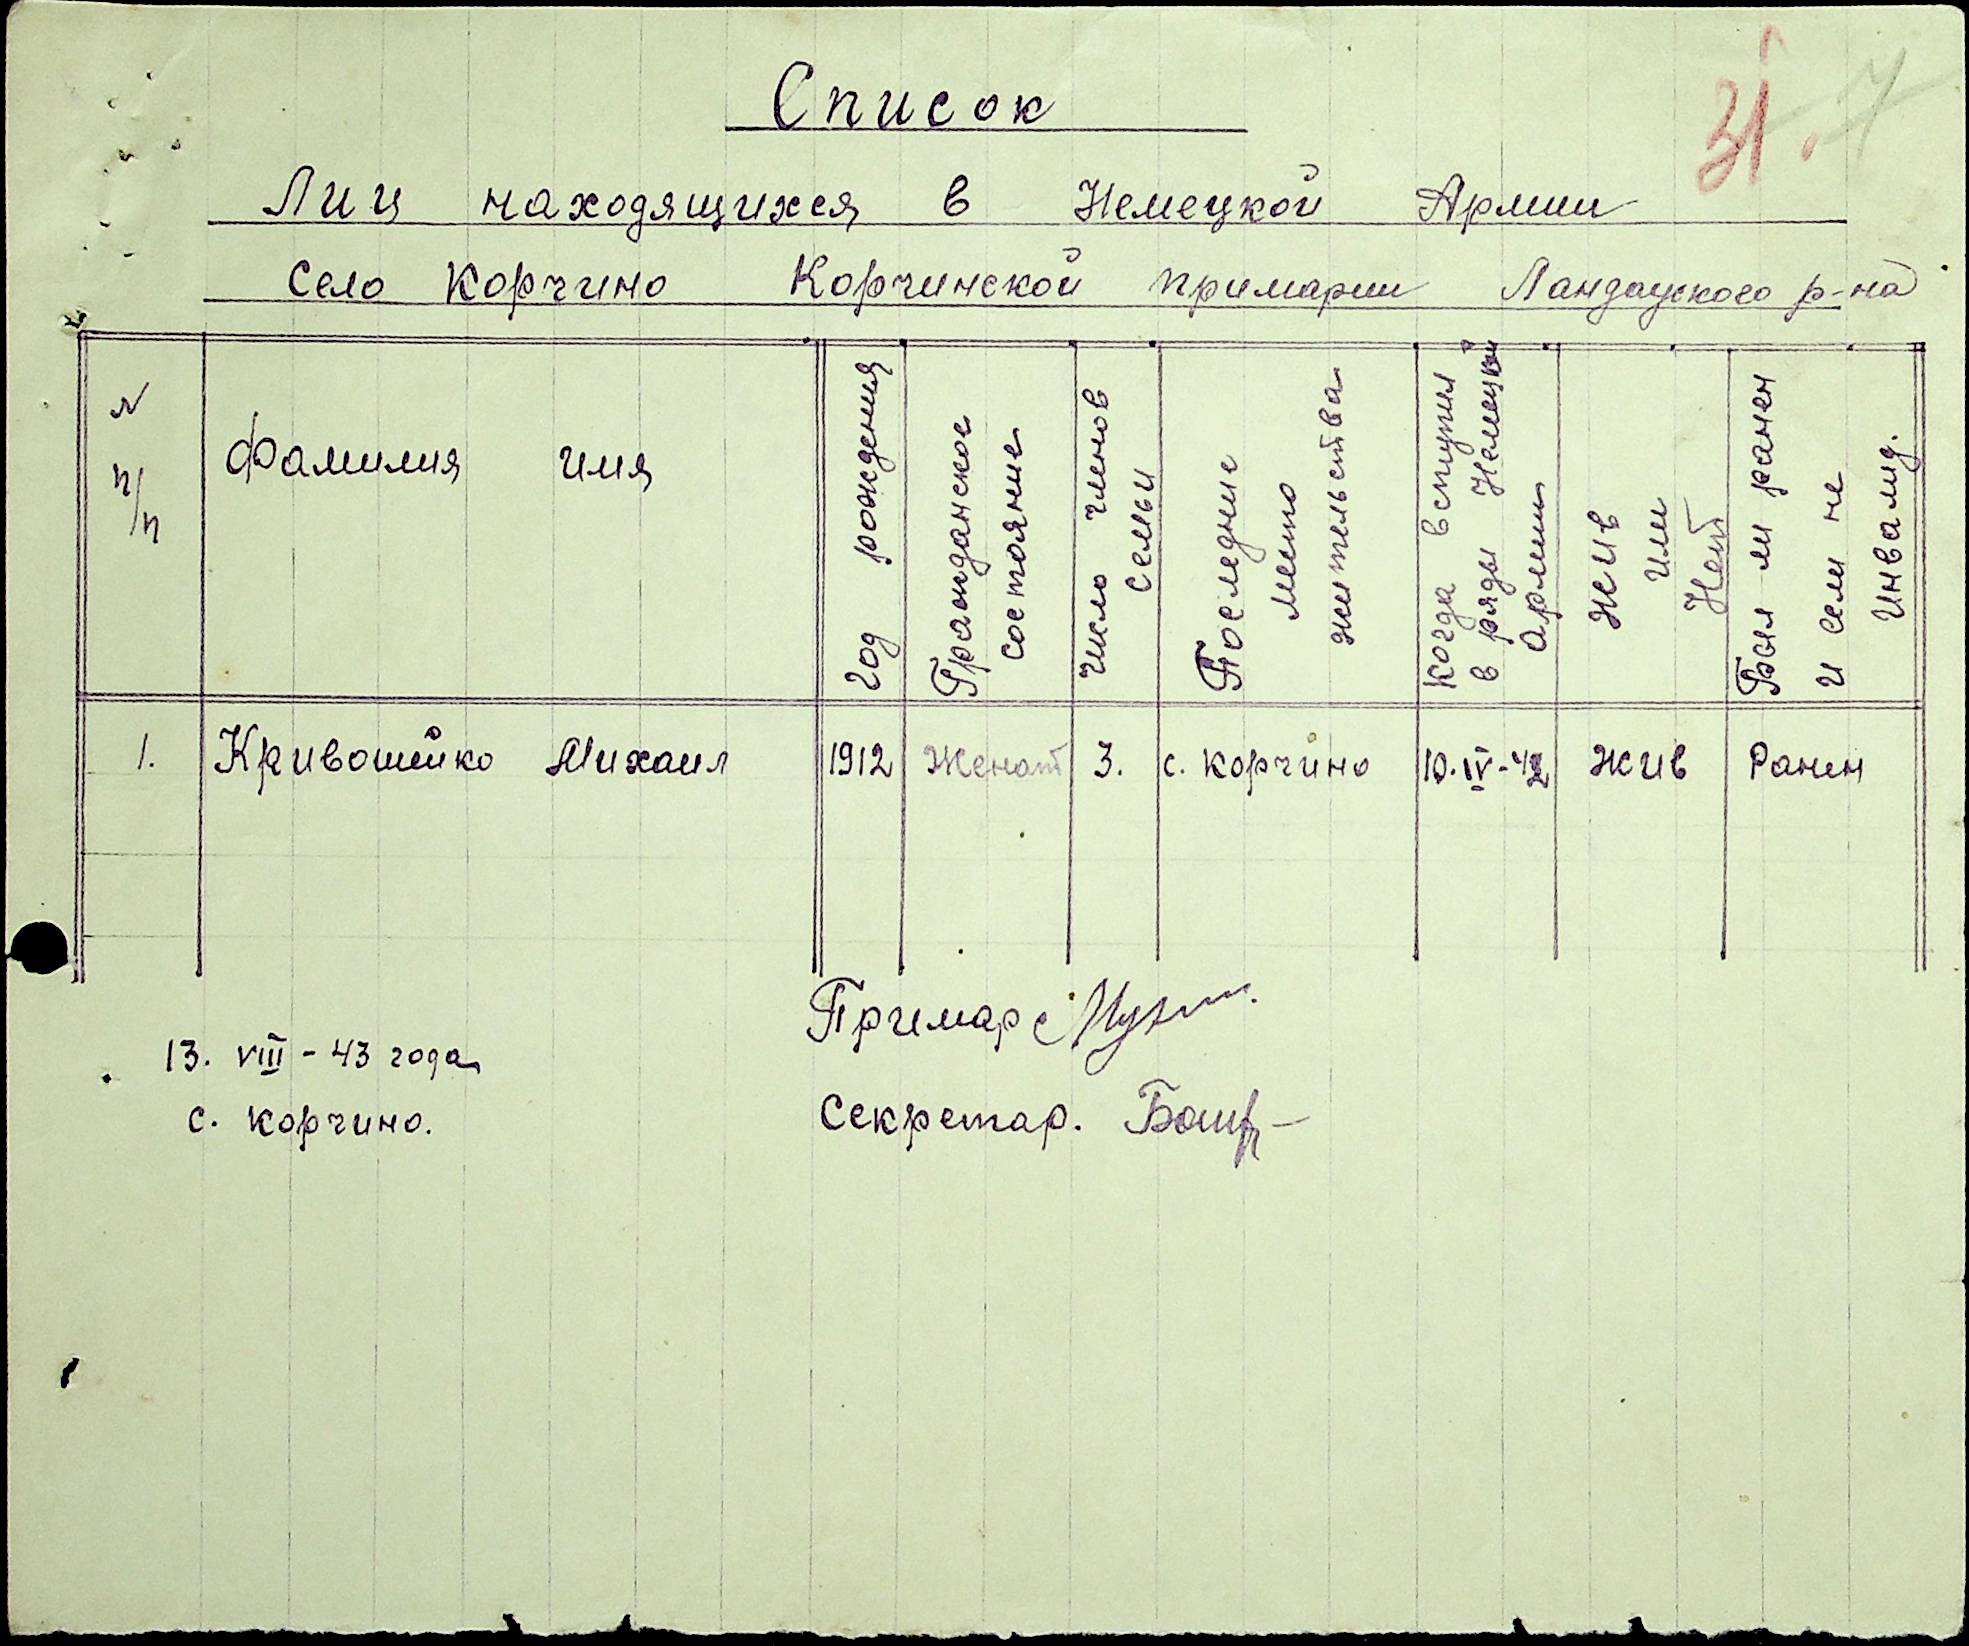 Список
31. 7
Лиц находящихся в Немецкой Армии
Село Корчино Корчинской примарии Ландауского р-на
N п/п
Фамилия имя
Год рождения
Гражданское состояние
Число членов семьи
Последние место жительства
Когда вступил в ряды Немецкой армии
Жив или Нет
Был ли ранен и если не инвалид.
1. Кривошейко Михаил 1912 Женат 3. с. Корчино 10.IV-42 Жив Ранен
Примар
13. VIII - 43 года
Секретар.
с. Корчино.